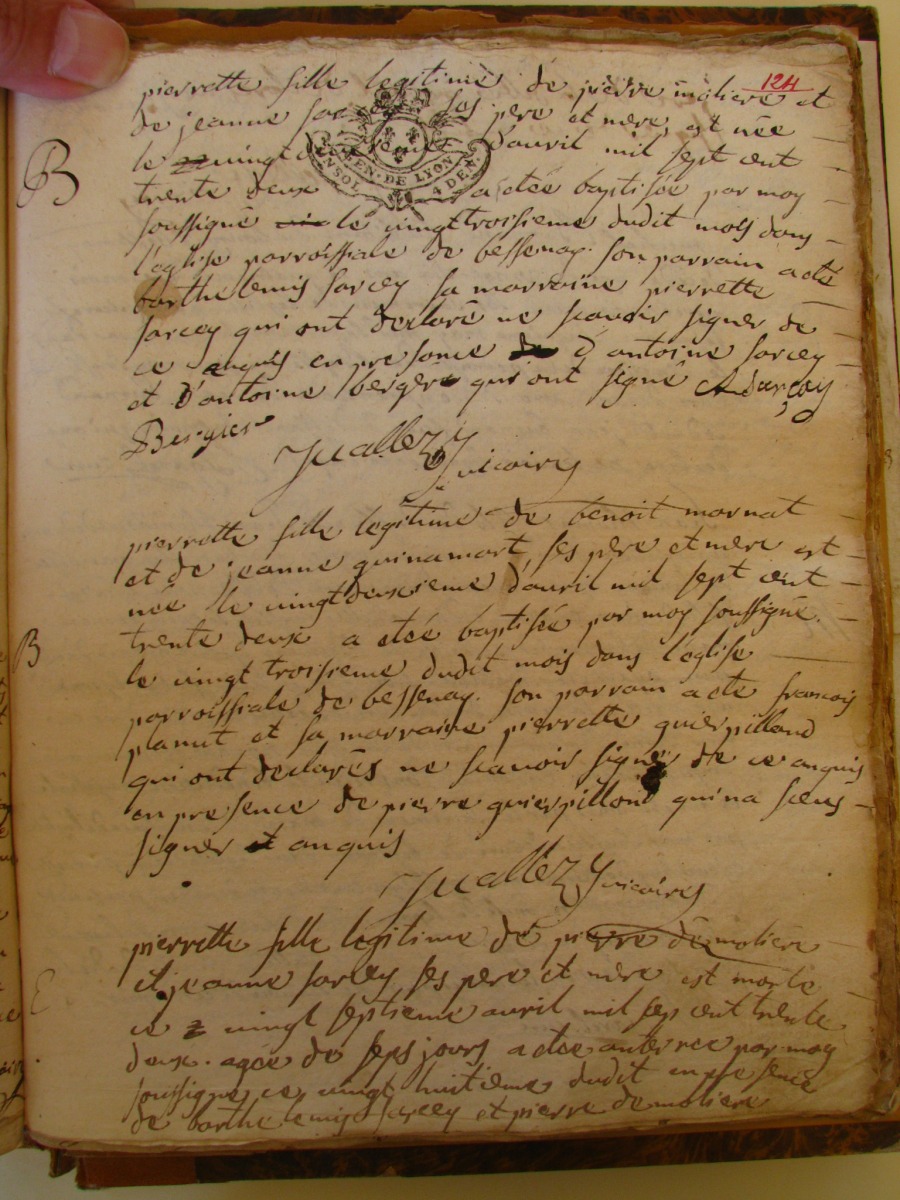 124
pierrette fille legitime de pierre moliere et
de jeanne ses pere et mere est née
le vingt d'avril mil sept cent
GEN. DE LYON
4 DEN.
trente deux a etée baptisée par moy
B
soussigné le vingttroisieme dudit mois dans
l'eglise parroissiale de bessenay. son parrain a eté
barthelemis sarcey sa marraine pierrette
sarcey qui ont declaré ne scavoir signer de
ce enquis en presence d'antoine sarcey
et d'antoine berger qui ont signé A Sarcey
Bergier
vicaire
pierrette fille legitime de benoit mornat
et de jeanne guinamart ses pere et mere est
née le vingtdeuxieme d'avril mil sept cent
trente deux a etée baptisée par moy soussigné
B
le vingt troisieme dudit mois dans l'eglise
parroissiale de bessenay. son parrain a eté francois
planut et sa marraine pierrette guierpilland
qui ont declarés ne scavoir signer de ce anquis
en presence de pierre guierpillond qui na sceus
signer et anquis
vicaire
pierrette fille legitime de pierre de moliere
E
et jeanne sarcey ses pere et mere est morte
ce vingt septieme avril mil sep cent trente
deux. agée de seps jours a etée anterree par moy
soussigné ce vingt huitieme dudit en presence
de barthelemis sarcey et pierre de moliere